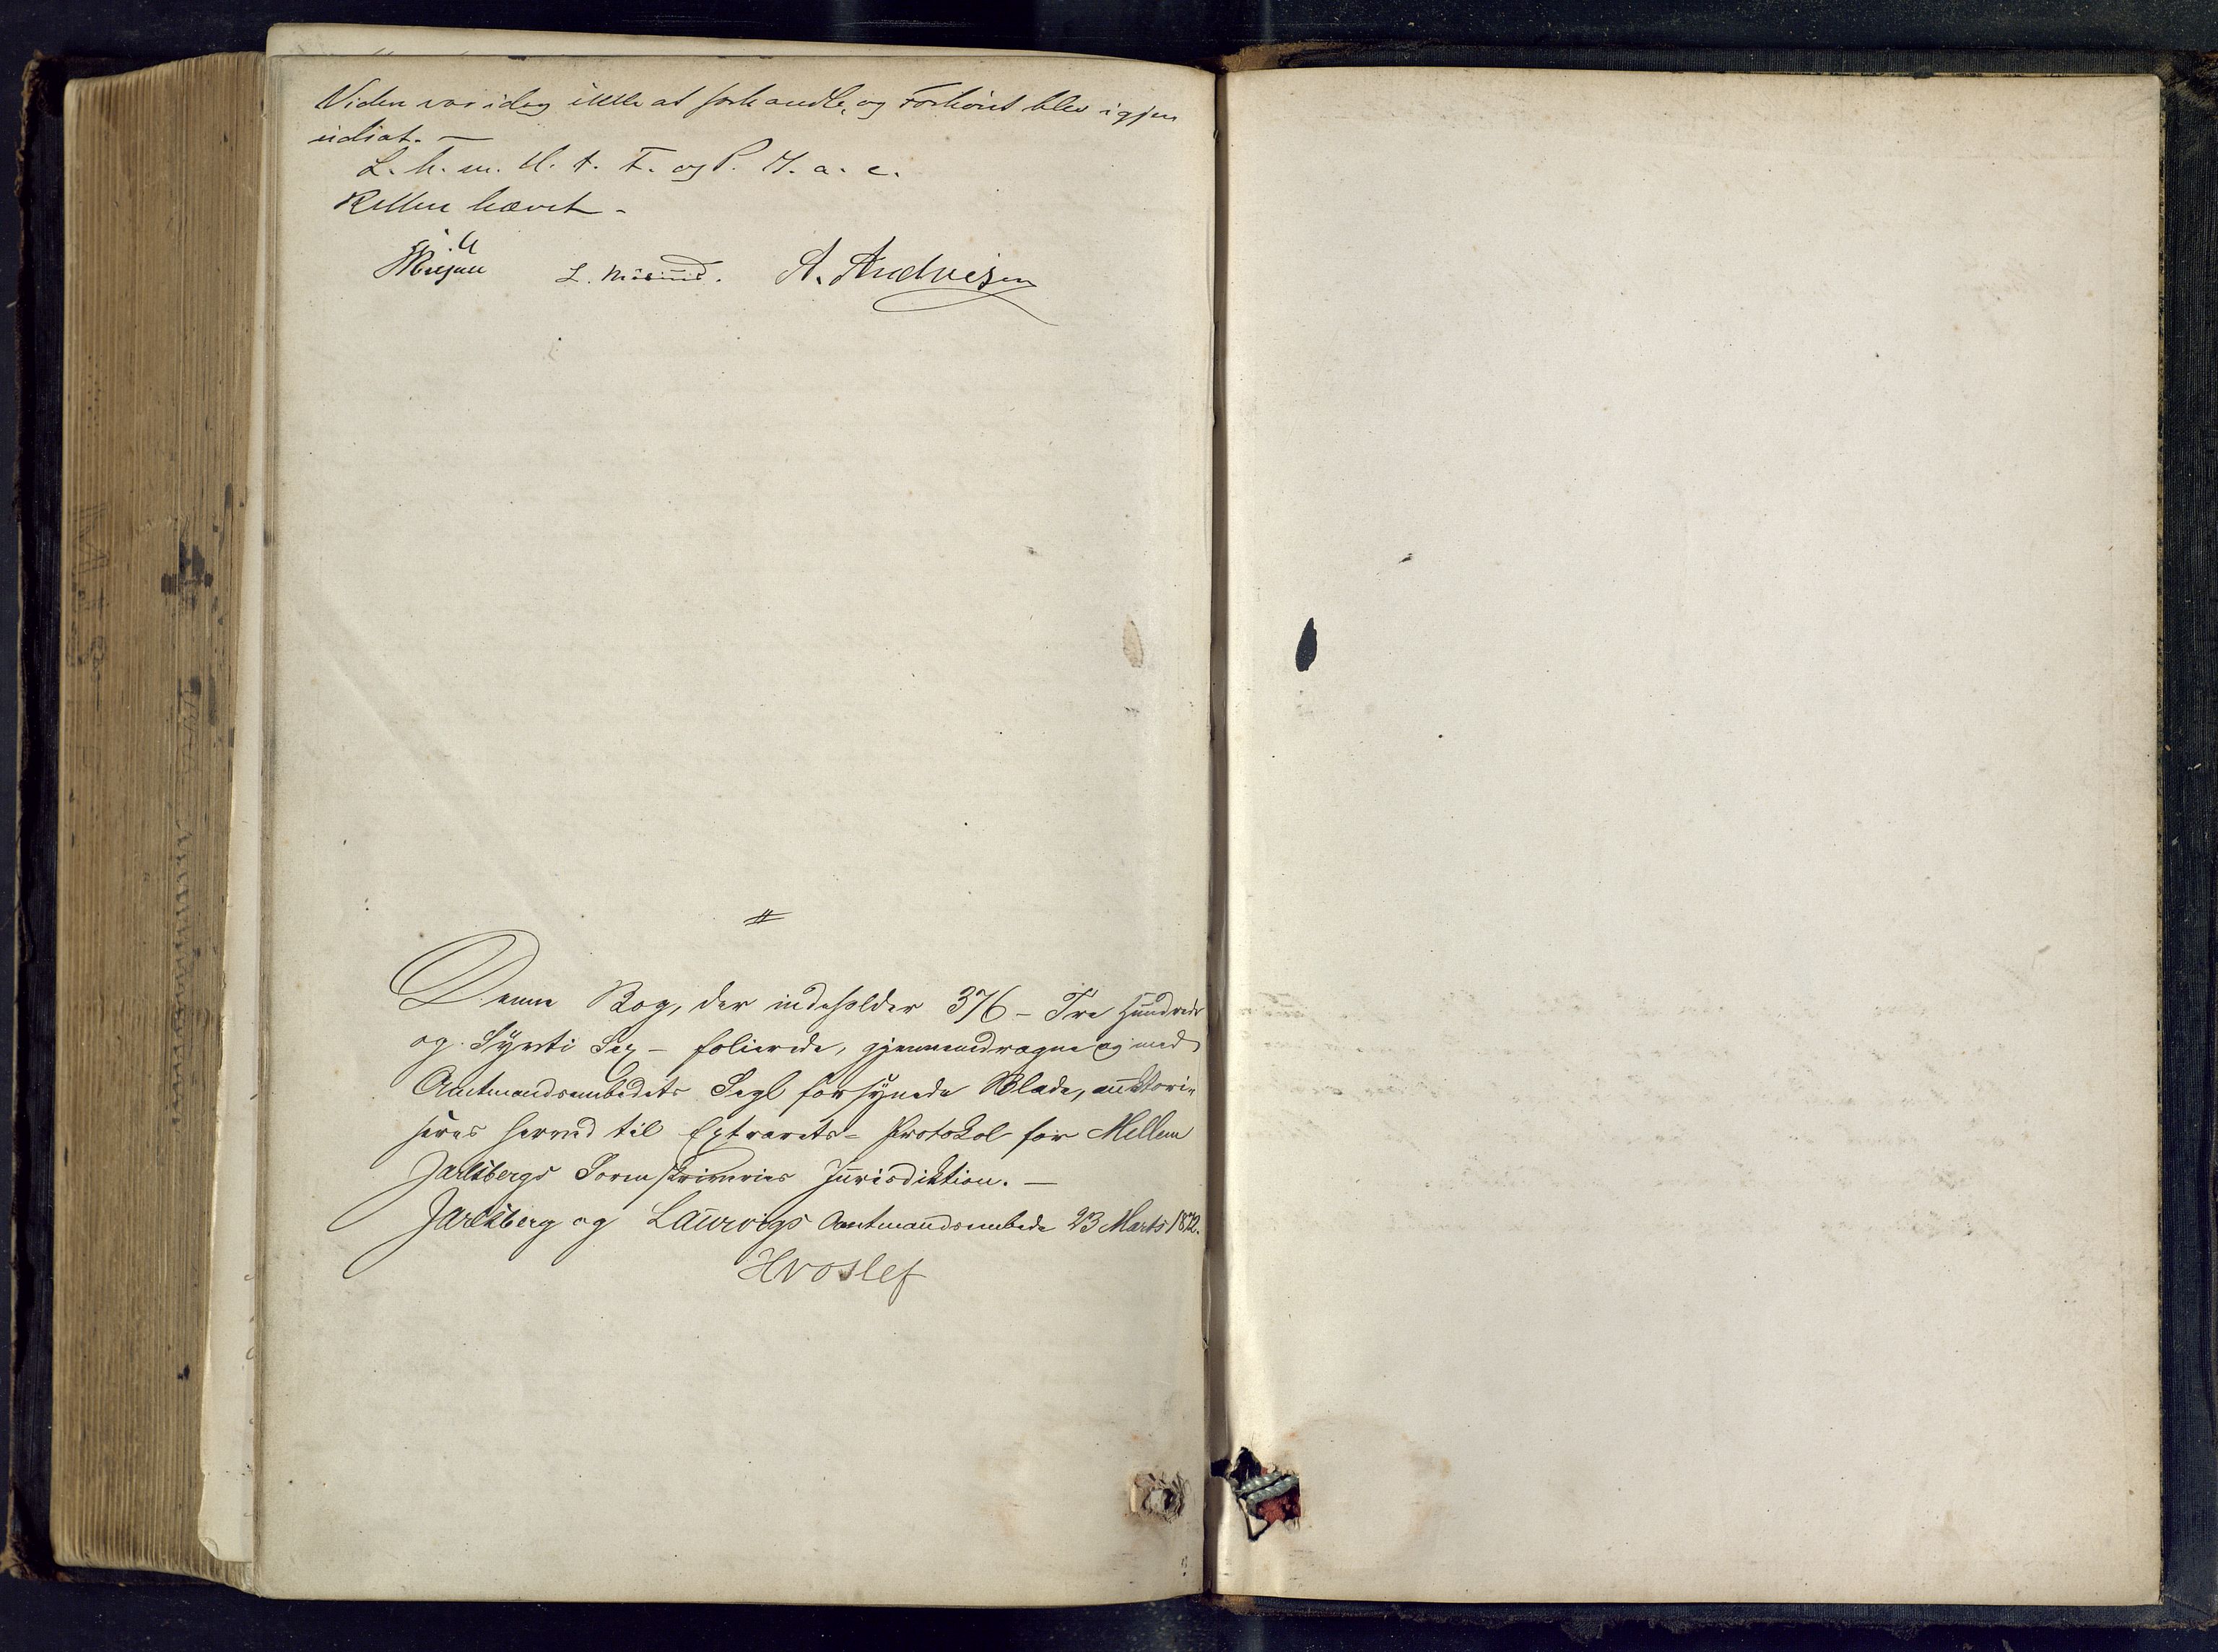 Viden var idag ikke at forhandle, og Forhöret blev igjen
udsat. —
L. h. m. U. t. T. og P. M. a. c.
Retten hævet -
A. Andresen
Denne Bog, der indeholder 376 – Tre Hundrede
og Sÿvti Sex – folierede, gjennemdragne og med
Amtmandsembedets Segl forsynede Blade, auktori-
seres herved til Extrarets- Protokol for Mellem
Jarlsbergs Sorenskriveries Jurisdiktion. —
Jarlsberg og Laurvigs Amtmandsembede 23 Marts 1872.
Hroslef